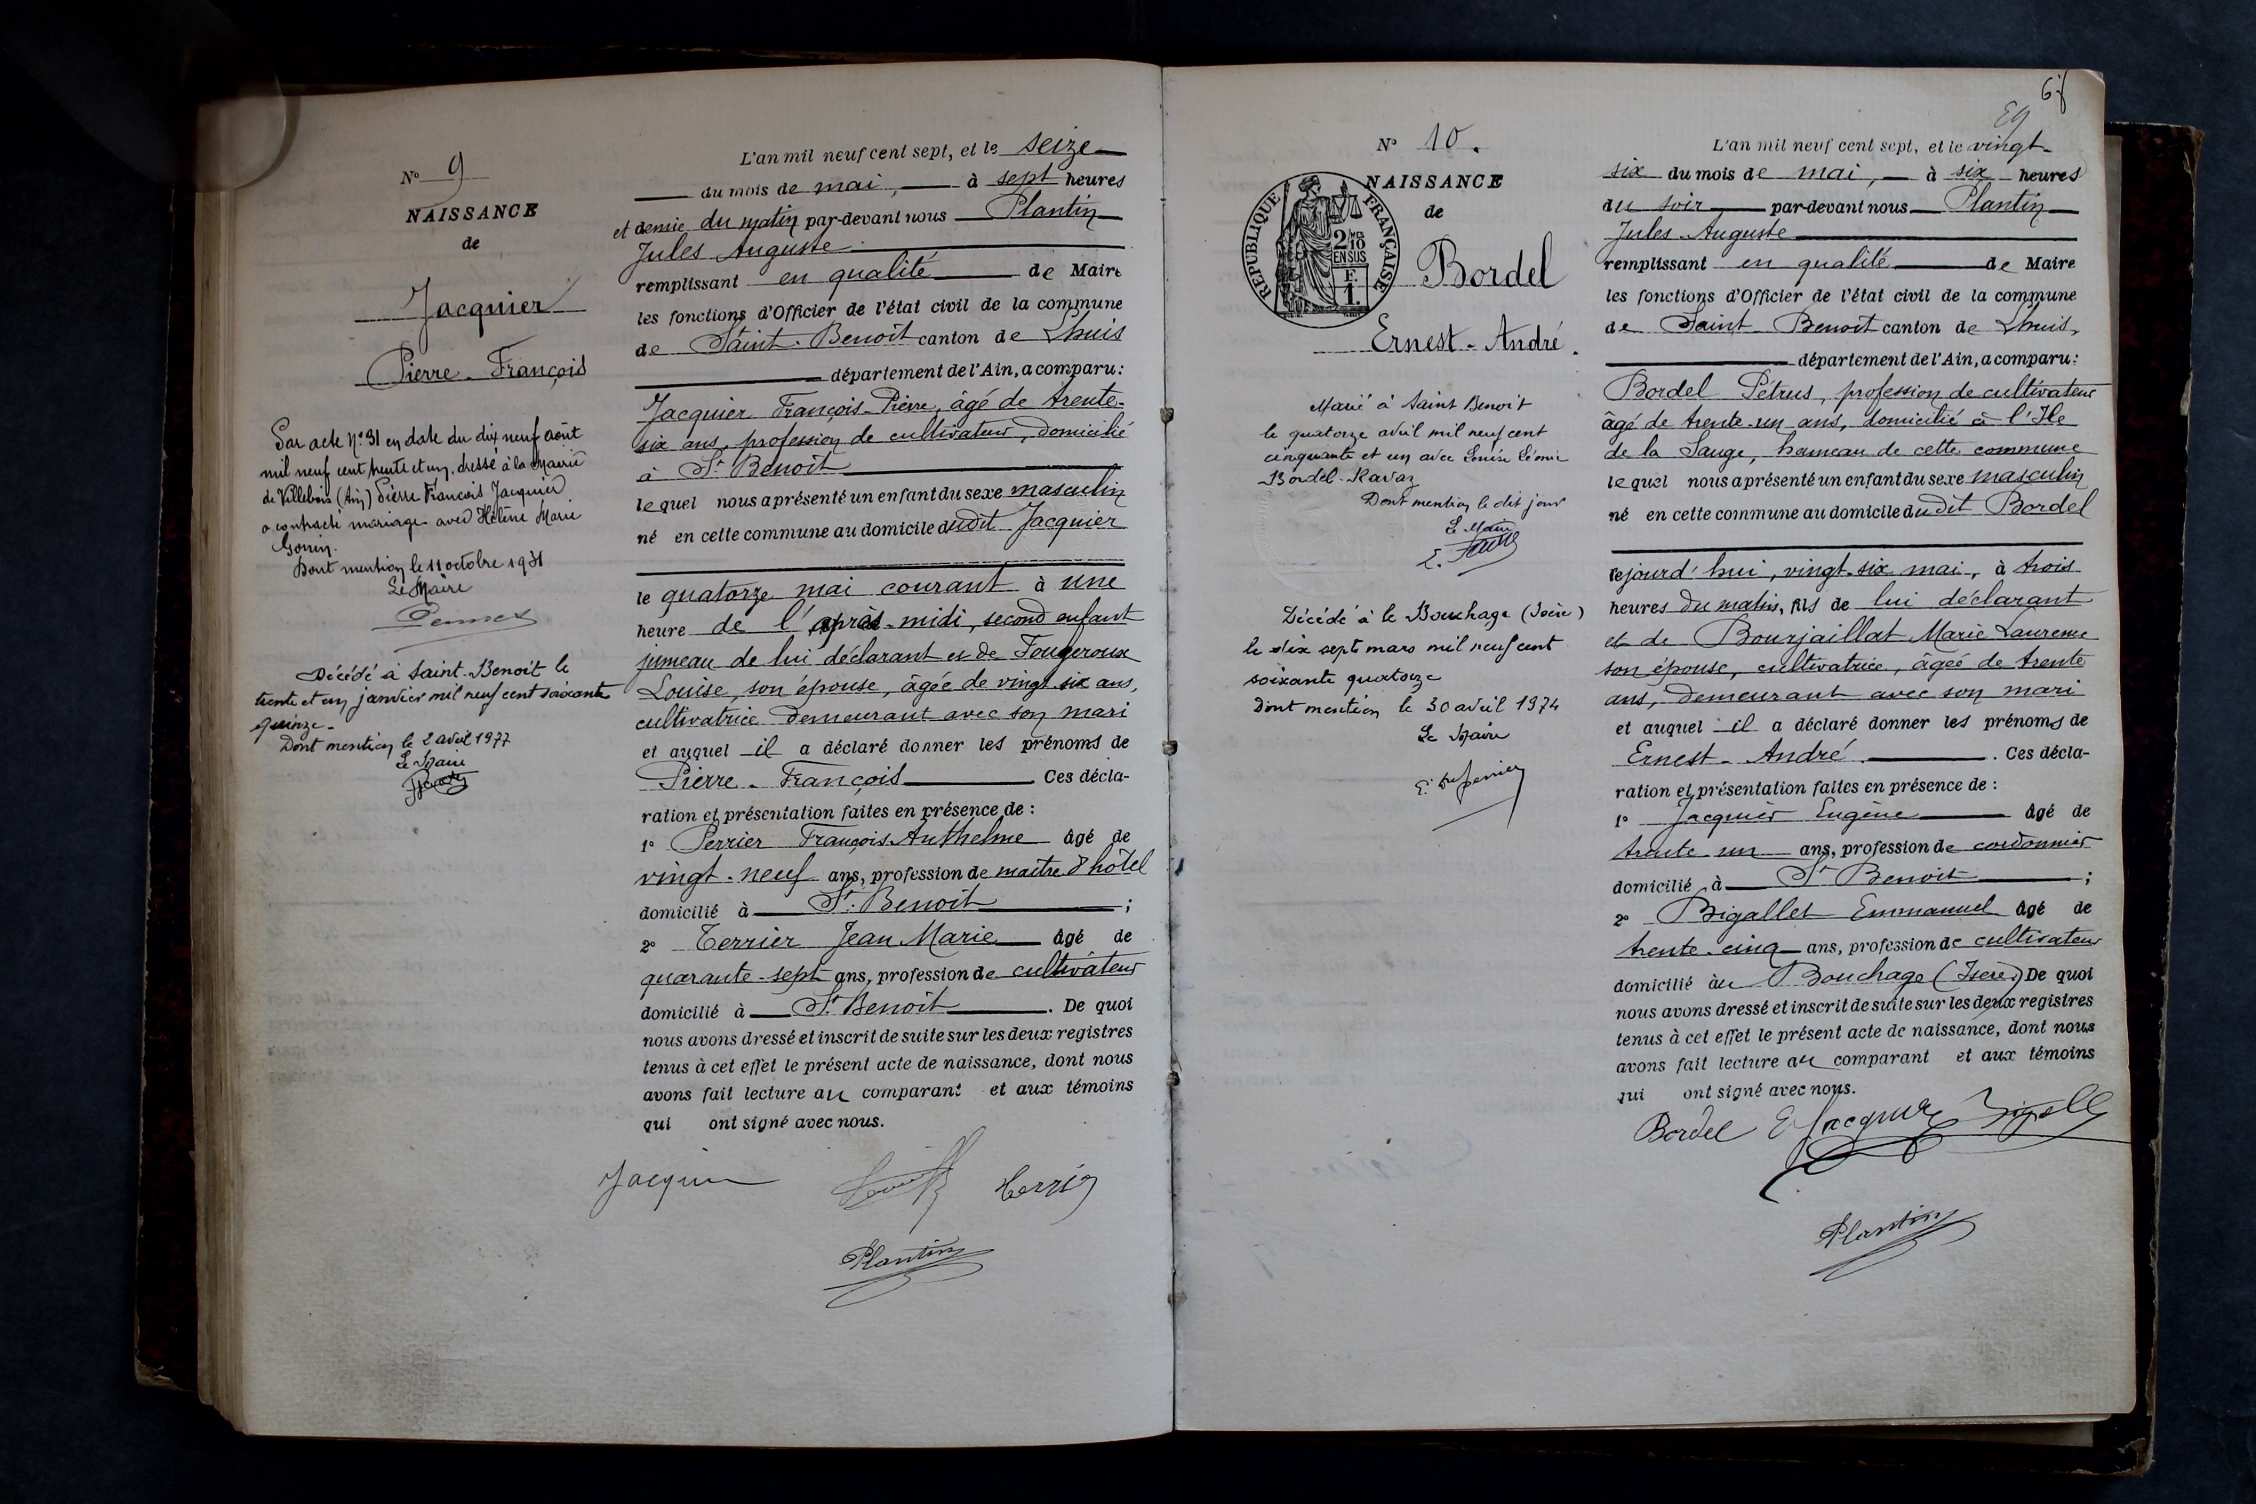 N° 9
NAISSANCE
de
Jacquier
Pierre-François
Par acte N° 31 en date du dix neuf août
mil neuf cent trente et un, dressé à la Mairie
de Villebois (Ain) Pierre François Jacquier
a contracté mariage avec Hélène Marie
Gonin.
Dont mention le 11 octobre 1931
Le Maire
Décédé à Saint-Benoit le
trente et un janvier mil neuf cent soixante
quinze -
Dont mention le 2 avril 1977
Le Maire
L'an mil neuf cent sept, et le seize
du mois de mai, à sept heures
et demie du matin par-devant nous Plantin
Jules Auguste
remplissant en qualité de Maire
les fonctions d'Officier de l'état civil de la commune
de Saint-Benoît canton de Lhuis
département de l'Ain, a comparu:
Jacquier François-Pierre, âgé de trente-
six ans, profession de cultivateur, domicilié
à St Benoit
lequel nous a présenté un enfant du sexe masculin
né en cette commune au domicile dudit Jacquier
le quatorze mai courant à une
heure de l'après-midi, second enfant
jumeau de lui déclarant et de Fougeroux
Louise, son épouse, âgée de vingt-six ans,
cultivatrice demeurant avec son mari
et auquel il a déclaré donner les prénoms de
Pierre-François Ces décla-
ration et présentation faites en présence de :
1° Perrier François-Anthelme âgé de
vingt-neuf ans, profession de maître d'hôtel
domicilié à St Benoît ;
2° Terrier Jean Marie âgé de
quarante-sept ans, profession de cultivateur
domicilié à St Benoit . De quoi
nous avons dressé et inscrit de suite sur les deux registres
tenus à cet effet le présent acte de naissance, dont nous
avons fait lecture au comparant et aux témoins
qui ont signé avec nous.
Jacquier Terrier
Plantin
67
Eg
N° 10.
NAISSANCE
de
RÉPUBLIQUE FRANÇAISE
2/10
EN SUS
F.
1.
Bordel
Ernest-André.
Marié à Saint Benoit
le quatorze avril mil neuf cent
cinquante et un avec Louise Léonie
Bordel-Ravaz
Dont mention le dit jour
Le Maire
Décédé à le Bouchage (Isère)
le dix sept mars mil neuf cent
soixante quatorze
Dont mention le 30 avril 1974
Le Maire
L'an mil neuf cent sept, et le vingt-
six du mois de mai, à six heures
du soir par-devant nous Plantin
Jules Auguste
remplissant en qualité de Maire
les fonctions d'Officier de l'état civil de la commune
de Saint-Benoit canton de Lhuis,
département de l'Ain, a comparu:
Bordel Pétrus, profession de cultivateur
âgé de trente-un ans, domicilié à l'Ile
de la Sauge, hameau de cette commune
lequel nous a présenté un enfant du sexe masculin
né en cette commune au domicile dudit Bordel
cejourd'hui, vingt-six mai, à trois
heures du matin, fils de lui déclarant
et de Bourjaillat Marie Laurence
son épouse, cultivatrice, âgée de trente
ans, demeurant avec son mari
et auquel il a déclaré donner les prénoms de
Ernest-André . Ces décla-
ration et présentation faites en présence de :
1° Jacquier Eugène âgé de
trente-un ans, profession de cordonnier
domicilié à St Benoit ;
2° Bigallet Emmanuel âgé de
trente-cinq ans, profession de cultivateur
domicilié au Bouchage (Isère) De quoi
nous avons dressé et inscrit de suite sur les deux registres
tenus à cet effet le présent acte de naissance, dont nous
avons fait lecture au comparant et aux témoins
qui ont signé avec nous.
Bordel E Jacquier Bigallet
Plantin